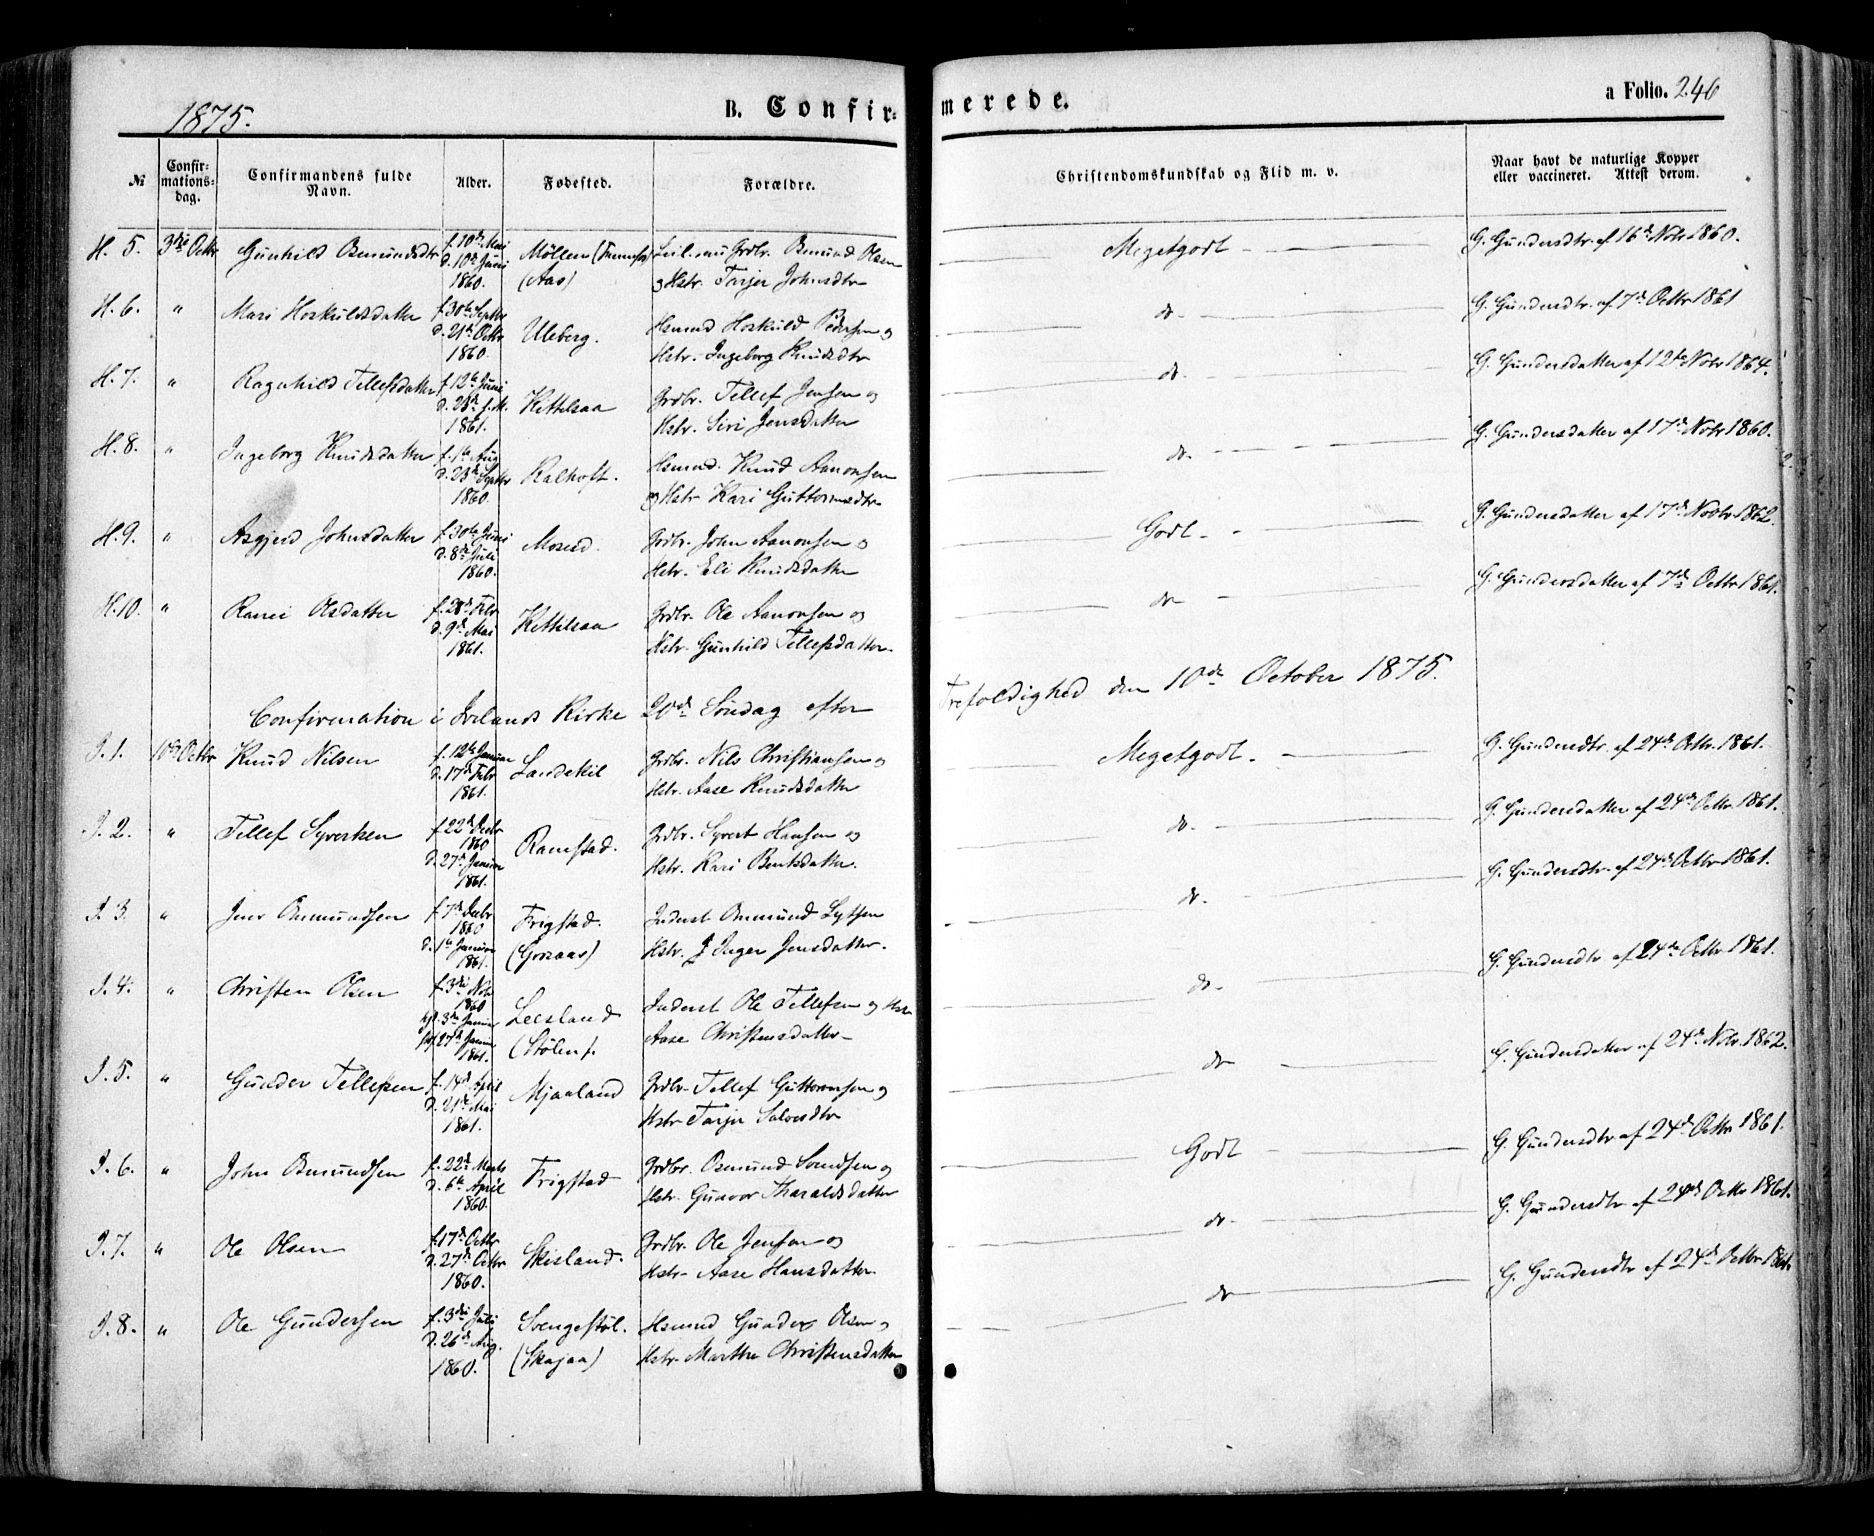 1875.
B. Confir-
merede.
a Folio. 246
№
Confir-
mations-
dag.
Confirmandens fulde
Navn.
Alder.
Fødested.
Forældre.
Christendomskundskab og Flid m. v.
Naar havt de naturlige Kopper
eller vaccineret. Attest derom.
H. 5. 3die Octbr Gunhild Osmundsdtr f. 10de Mai Møllen
d. 10de Juni (Aas) og Hstr. Tarjer Johnsdtr
1860.
Megetgodt - G. Gundersdtr. af 16de Novbr 1860.
H. 6. " Mari Hoskuldsdatter f. 30te Septbr Uleberg. Hsmnd Hoskuld Pedersen og
d. 21de Octbr Hstr. Ingeborg Knudsdtr
1860.
do. G. Gundersdtr. af 7de Octbr 1861
H. 7. " Ragnhild Tellefsdatter f. 12te Juni Kittelsaa Grdbr. Tellef Jensen og
d. 23de s. M. Hstr. Siri Jensdatter
1861.
do. G. Gundersdatter af 12te Novbr 1864.
H. 8. " Ingeborg Knudsdatter f. 1ste Aug Kalhoft. Hsmnd. Knud Aanonsen
d. 23de Septbr og Hstr Kari Guttormsdtr
1860.
do. G. Gundersdatter af 17de Novbr 1860.
H. 9. " Asgjerd Johnsdatter f. 30te Juni Mosed. Grdbr. John Aanonsen og
d. 8de Juli Hstr. Eli Knudsdatter
1860.
Godt. G. Gundersdatter af 17de Novbr 1862.
H. 10. " Ranei Olsdatter f. 28de Febr Kittelsaa Grdbr. Ole Aanonsen og
d. 9de Mai Hstr. Gunhild Tellefsdatter.
1861.
do G. Gundersdatter af 7de Octbr 1861.
Confirmation i Iveland Kirke 20de Søndag efter Trefoldighed den 10de October 1875.
I. 1. 10de Octbr Knud Nilsen f. 12te Januar Landekil Grdbr. Nils Christiansen og
d. 17de Febr Hstr. Aase Knudsdatter
1861.
Megetgodt. G. Gundersdtr. af 24de Octbr. 1861.
I. 2. " Tellef Syvertsen f. 22de Decbr Ramstad. Grdbr. Syvert Hansen og
1860
d. 27de Januar Hstr. Kari Bentsdatter.
1861.
do. G. Gundersdatter af 24de Octbr. 1861.
I. 3. " Jens Osmundsen f. 7de Decbr Frigstad. Inderst Osmund
1860
d. 1ste Januar (Groaas) Hstr. Inger Jensdatter.
1861.
do. G. Gundersdtr. af 24de Octbr 1861.
I. 4. " Christen Olsen f. 3die Novbr Leesland Inderst Ole Tellefsen og Hstr
1860
hjd. 3die Januar (Stølen). Aase Christensdatter
27de Januar
1861.
do. G. Gundersdtr af 24de Octbr. 1861.
I. 5. " Gunder Tellefsen f. 14de April Mjaaland Grdbr. Tellef Guttormsen og
d. 21de Mai Hstr Tarjer Salvesdtr
1861.
do G. Gundersdatter af 24de Novbr. 1862.
I. 6. " John Osmundsen f. 22de Marts Frigstad Grdbr. Osmund og
d. 6te April Hstr. Gunvor Tharaldsdatter
1860.
Godt G. Gundersdtr af 24de Octbr 1861.
I. 7. " Ole Olsen f. 17de Octbr Skisland. Grdbr. Ole Jensen og
d. 27de Octbr Hstr Aase Hansdatter.
1860.
do. G. Gundersdtr af 24de Octbr 1861.
I. 8. " Ole Gundersen f. 3die Juli Svengestøl. Hsmnd Gunder Olsen og
d. 26de Aug. (Skajaa) Hstr Marthe Christensdatter
1860.
do G. Gundersdtr af 24de Octbr 1861.